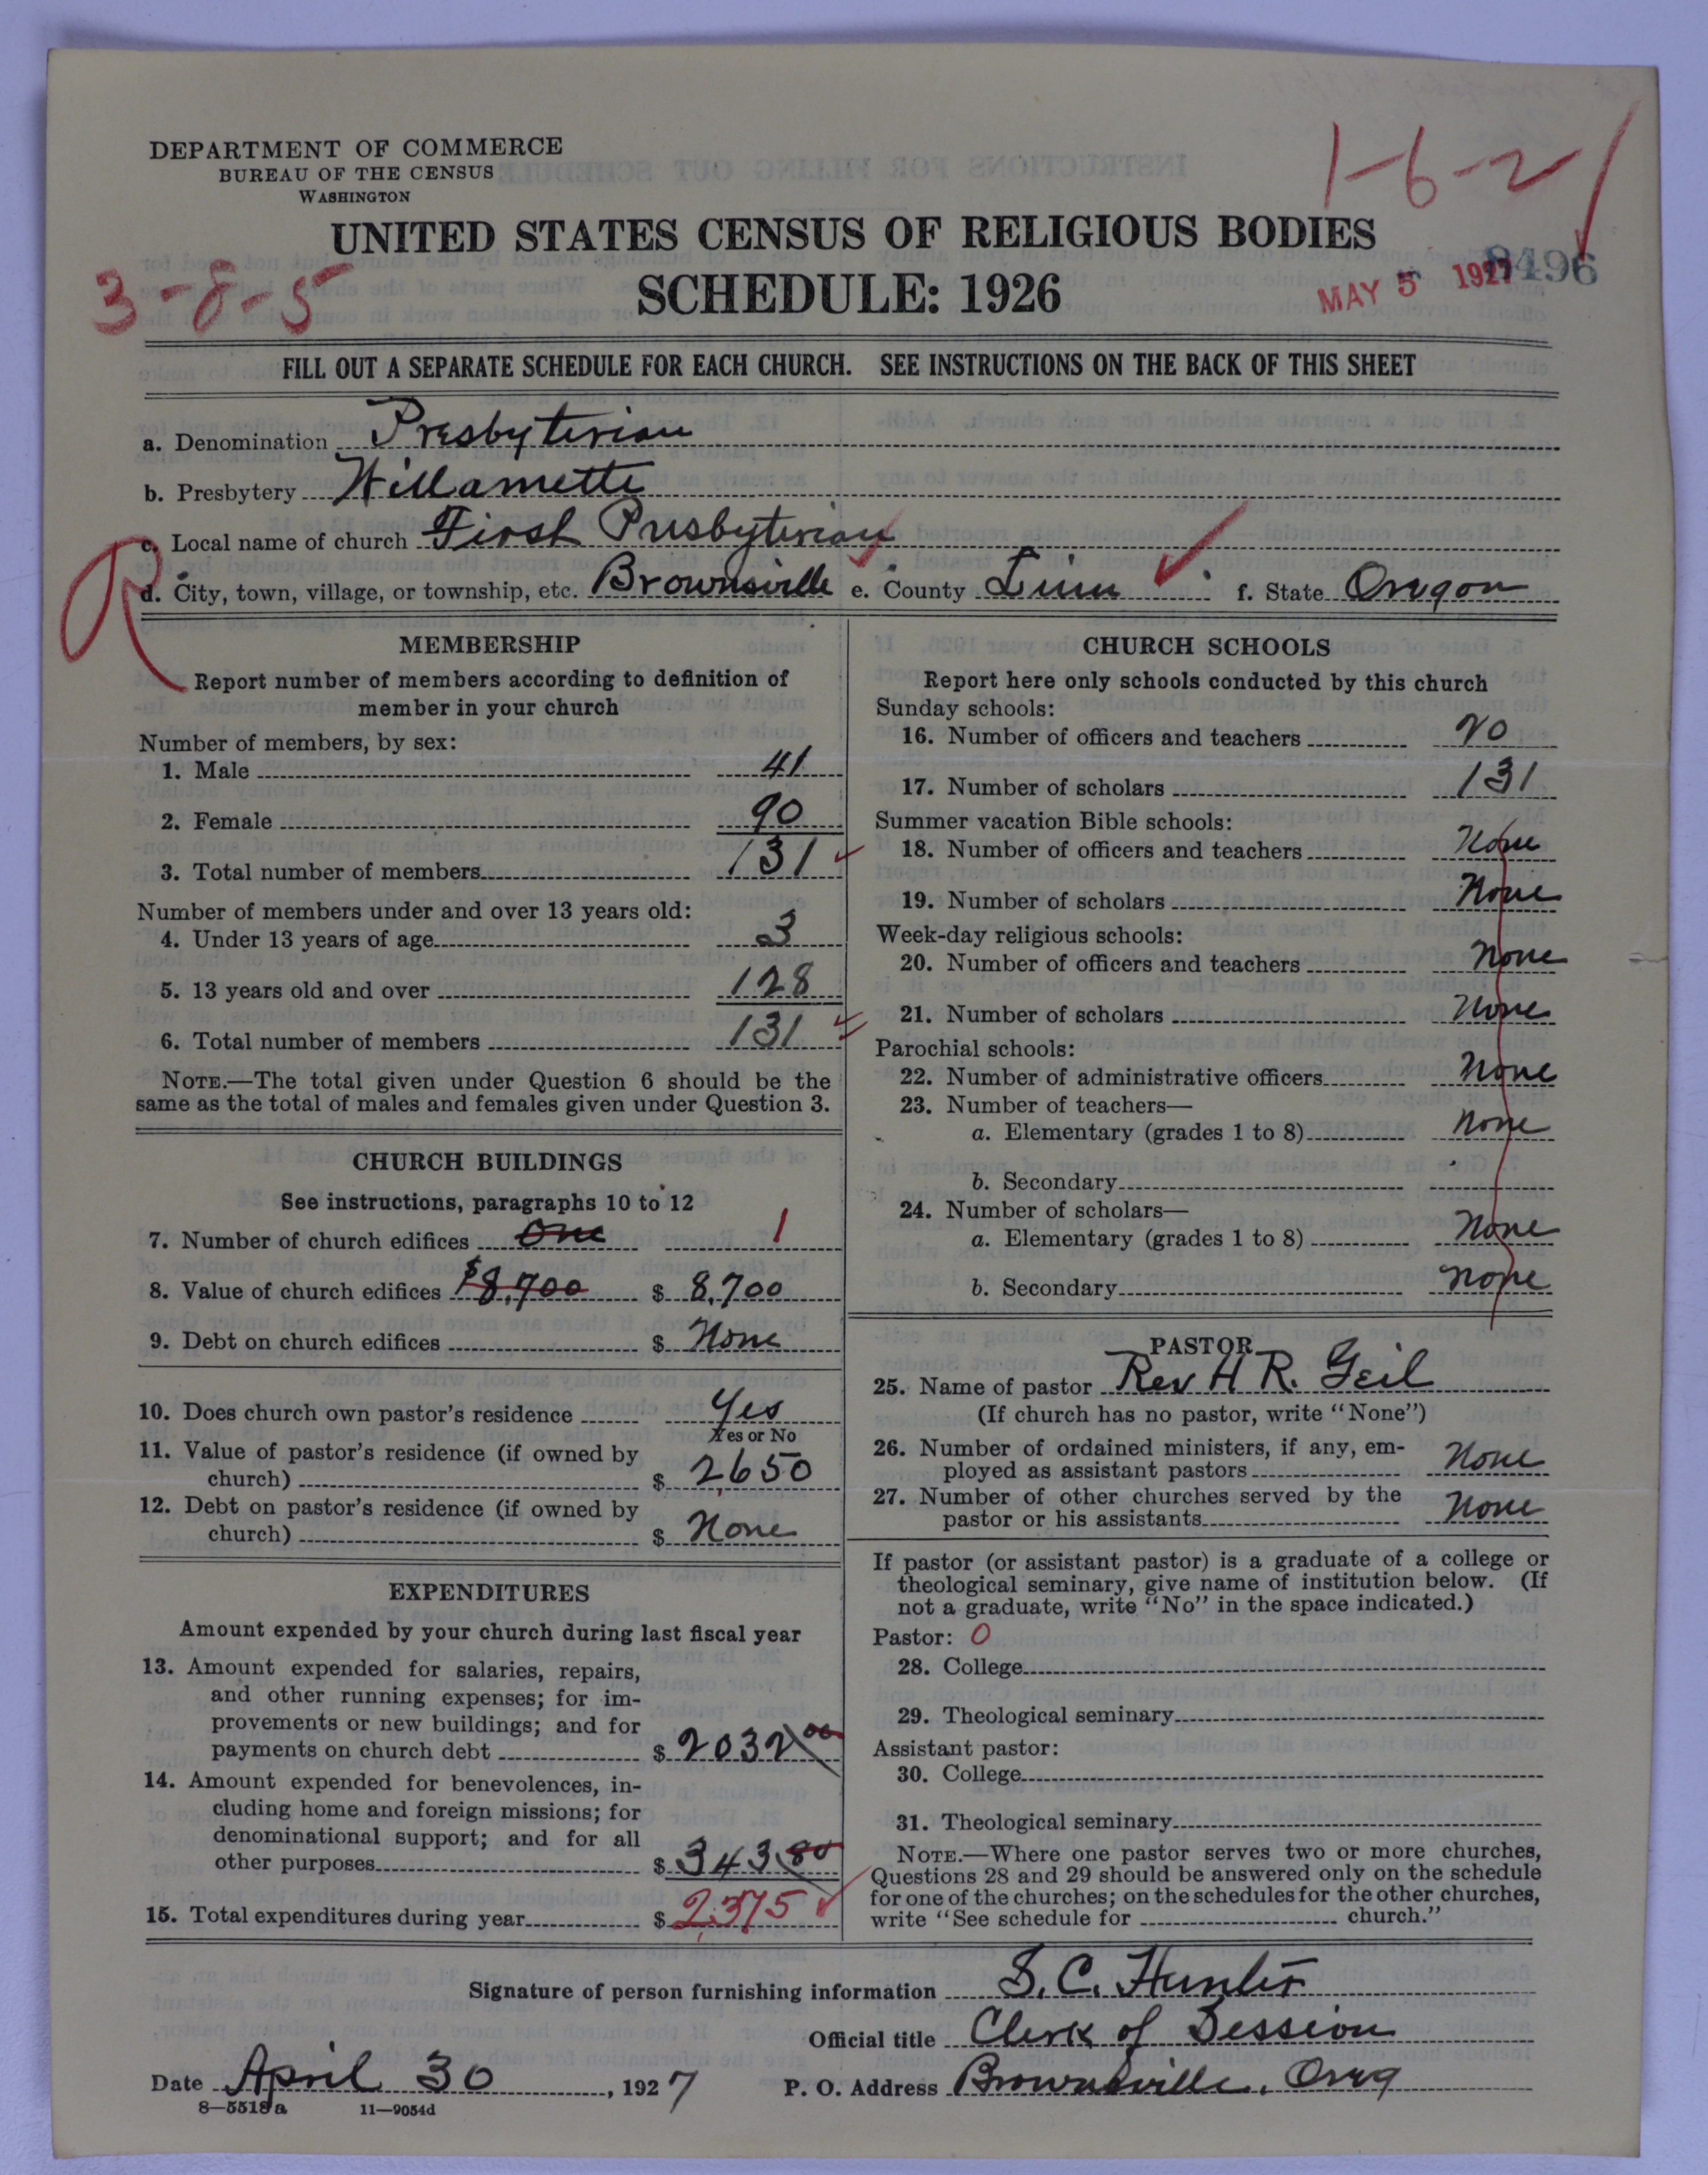 DEPARTMENT OF COMMERCE
BUREAU OF THE CENSUS
WASHINGTON
1-6-2
UNITED STATES CENSUS OF RELIGIOUS BODIES
3-8-5
SCHEDULE: 1926
MAY 5 1927
8496
FILL OUT A SEPARATE SCHEDULE FOR EACH CHURCH. SEE INSTRUCTIONS ON THE BACK OF THIS SHEET
a. Denomination Presbyterian
b. Presbytery Willamette
c. Local name of church First Presbyterian
d. City, town, village, or township, etc. Brownsville e. County Linn f. State Oregon
MEMBERSHIP
Report number of members according to definition of
member in your church
Number of members, by sex:
1. Male 41
2. Female 90
3. Total number of members 131
Number of members under and over 13 years old:
4. Under 13 years of age 3
5. 13 years old and over 128
6. Total number of members 131
NOTE.—The total given under Question 6 should be the
same as the total of males and females given under Question 3.
CHURCH BUILDINGS
See instructions, paragraphs 10 to 12
7. Number of church edifices One 1
8. Value of church edifices $8,700 $ 8,700
9. Debt on church edifices $ None
10. Does church own pastor's residence Yes
Yes or No
11. Value of pastor's residence (if owned by
church) $ 2650
12. Debt on pastor's residence (if owned by
church) $ None
EXPENDITURES
Amount expended by your church during last fiscal year
13. Amount expended for salaries, repairs,
and other running expenses; for im-
provements or new buildings; and for
payments on church debt $ 2032 00
14. Amount expended for benevolences, in-
cluding home and foreign missions; for
denominational support; and for all
other purposes $ 343.80
15. Total expenditures during year $ 2,375
CHURCH SCHOOLS
Report here only schools conducted by this church
Sunday schools:
16. Number of officers and teachers 20
17. Number of scholars 131
Summer vacation Bible schools:
18. Number of officers and teachers None
19. Number of scholars None
Week-day religious schools:
20. Number of officers and teachers None
21. Number of scholars None
Parochial schools:
22. Number of administrative officers None
23. Number of teachers—
a. Elementary (grades 1 to 8) None
b. Secondary
24. Number of scholars—
a. Elementary (grades 1 to 8) None
b. Secondary None
PASTOR
25. Name of pastor Rev H R. Geil
(If church has no pastor, write "None")
26. Number of ordained ministers, if any, em-
ployed as assistant pastors None
27. Number of other churches served by the
pastor or his assistants None
If pastor (or assistant pastor) is a graduate of a college or
theological seminary, give name of institution below. (If
not a graduate, write "No" in the space indicated.)
Pastor: 0
28. College
29. Theological seminary
Assistant pastor:
30. College
31. Theological seminary
NOTE.—Where one pastor serves two or more churches,
Questions 28 and 29 should be answered only on the schedule
for one of the churches; on the schedules for the other churches,
write "See schedule for church."
Signature of person furnishing information S. C. Hunter
Official title Clerk of Session
Date April 30, 1927 P. O. Address Brownsville, Oreg
8—5518a 11—9054d